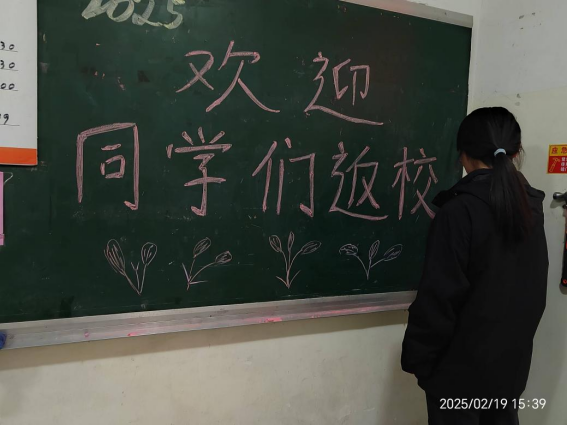 2025
欢迎
同学们返校
30
30
00
2025/02/19 15:39